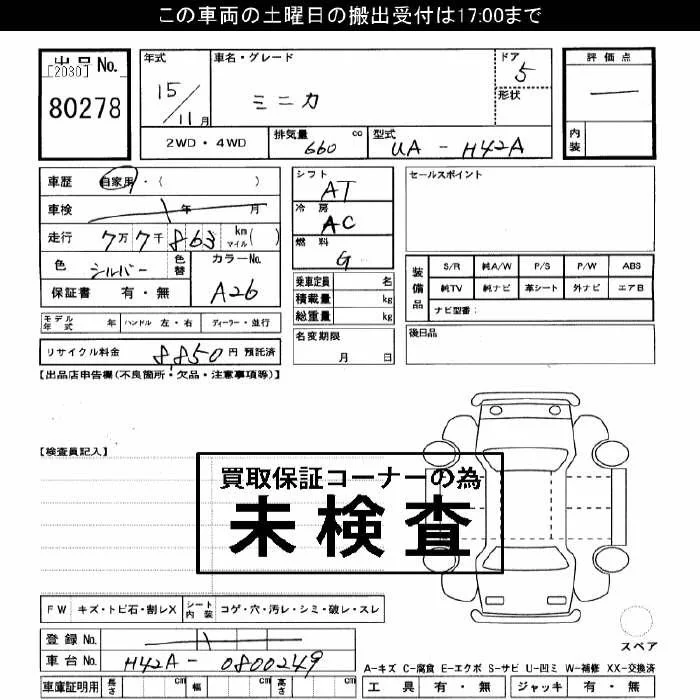 この車両の土曜日の搬出受付は17:00まで
出品 No.
[2030]
80278
年式
15/11月
車名・グレード
ミニカ
ドア
5
形状
評価点
―
内装
2WD・4WD
排気量 cc
660
型式
UA - H42A
車歴 自家用・( )
車検 年 月
走行 7万7千863 km マイル( )
色 シルバー 色替
カラーNo.
A26
保証書 有・無
シフト
AT
冷房
AC
燃料
G
乗車定員 名
積載量 kg
総重量 kg
セールスポイント
装備品
S/R 純A/W P/S P/W ABS
純TV 純ナビ 革シート 外ナビ エアB
ナビ型番:
モデル年式 年 ハンドル 左・右 ディーラー・並行
名変期限
月 日
後日品
リサイクル料金 8,850 円 預託済
【出品店申告欄(不良箇所・欠品・注意事項等)】
【検査員記入】
買取保証コーナーの為
未検査
FW キズ・トビ石・割レX シート内装 コゲ・穴・汚レ・シミ・破レ・スレ
登録 No.
車台 No. H42A - 0800249
車庫証明用 長さ cm 幅 cm 高さ cm
スペア
A-キズ C-腐食 E-エクボ S-サビ U-凹ミ W-補修 XX-交換済
工具 有・無 ジャッキ 有・無